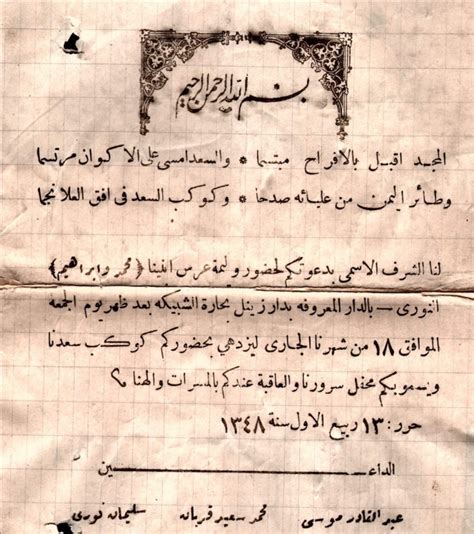 بسم الله الرحمن الرحيم
المجد اقبل بالافراح مبتسما * والسعد امسى على الاكوان مرتسما
وطائر اليمن من عليائه صدحا * وكوكب السعد في افق العلا نجما
لنا الشرف الاسمى بدعوتكم لحضور وليمة عرس ابنينا (محمد وابراهيم)
النورى — بالدار المعروفه بدار زينل بحارة الشبيكه بعد ظهر يوم الجمعه
الموافق ١٨ من شهرنا الجارى ليزدهي بحضوركم كوكب سعدنا
ويسمو بكم محفل سرورنا والعاقبة عندكم بالمسرات والهنا م؟
حرر : ١٣ ربيع الاول سنة ١٣٤٨
الداعين
عبد القادر موسى محمد سعيد قربانه سليمان نورى